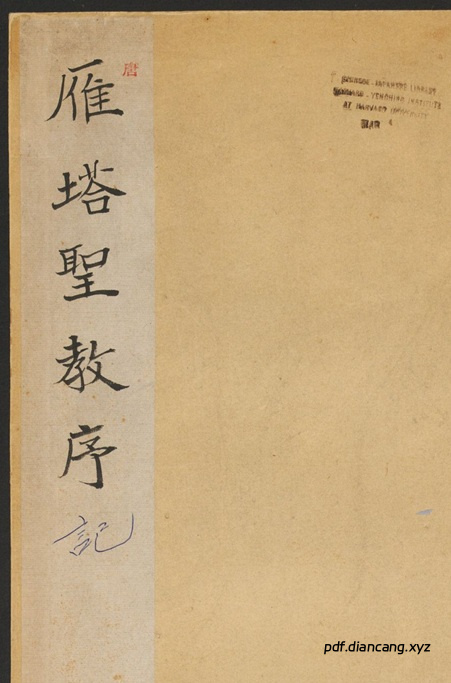 雁塔聖教序
記
唐
CHINESE-JAPANESE LIBRARY
HARVARD-YENCHING INSTITUTE
AT HARVARD UNIVERSITY
MAR 4
pdf.diancang.xyz